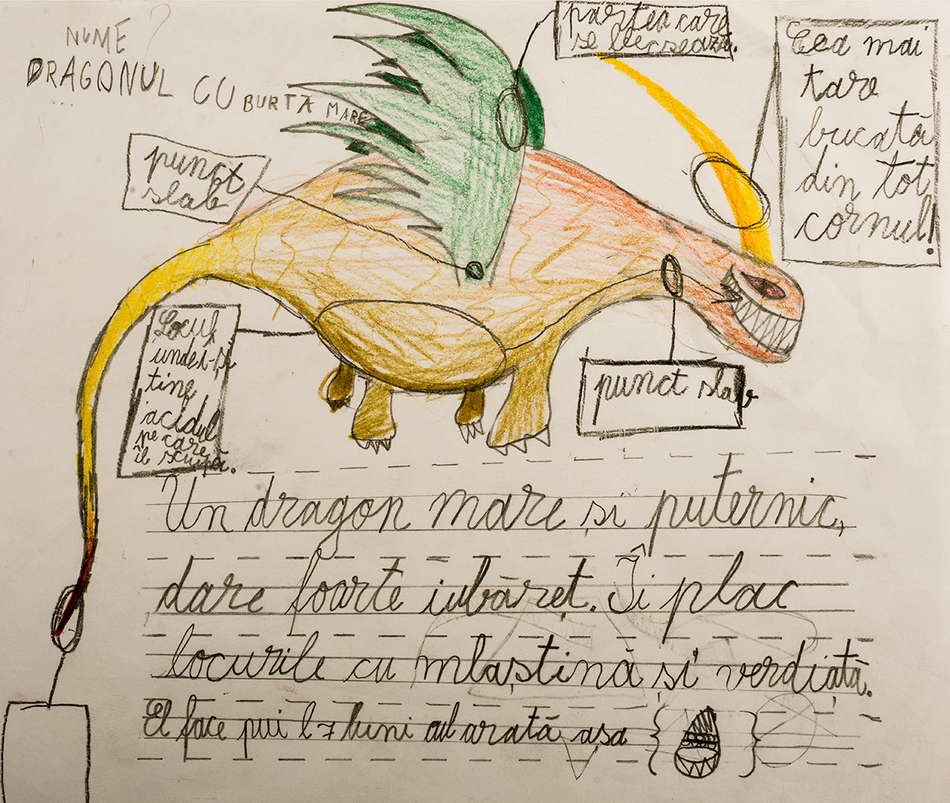 NUME ?
DRAGONUL CU BURTA MARE
partea care
se
Cea mai
tare
bucată
din tot
cornul!
punct
slab
Locul
unde-și
tine
acidul
pe care
îl scuipă.
punct slab
Un dragon mare și puternic,
dare foarte iubăreț. Îi plac
locurile cu mlaștină și verdiață.
El face pui 7 luni arată așa